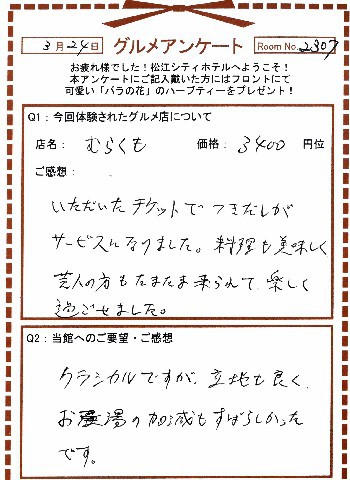 3月24日 グルメアンケート Room No. 2307
お疲れ様でした!松江シティホテルへようこそ!
本アンケートにご記入戴いた方にはフロントにて
可愛い「バラの花」のハーブティーをプレゼント!
Q1:今回体験されたグルメ店について
店名: むらくも 価格: 3400 円位
ご感想:
いただいたチケットでつきだしが
サービスになりました。料理も美味しく
芸人の方もたまたま来られて、楽しく
過ごせました。
Q2:当館へのご要望・ご感想
クラシカルですが、立地も良く、
お湯の加減もすばらしかった
です。